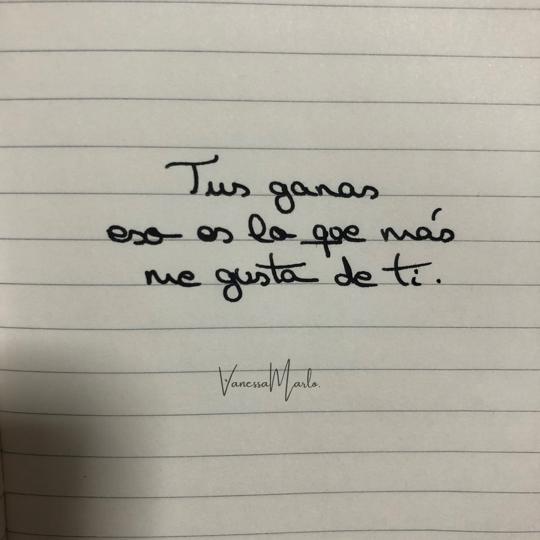 Tus ganas
eso es lo que más
me gusta de ti.
VanessaMarlo.